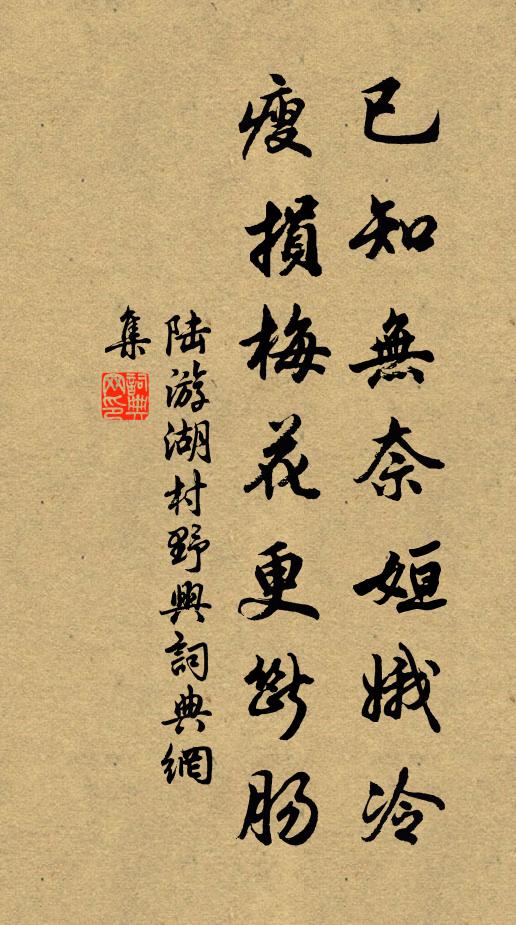 已知無奈姮娥冷
瘦損梅花更斷腸
陆游湖村野興詞典網
集
詞典
网印